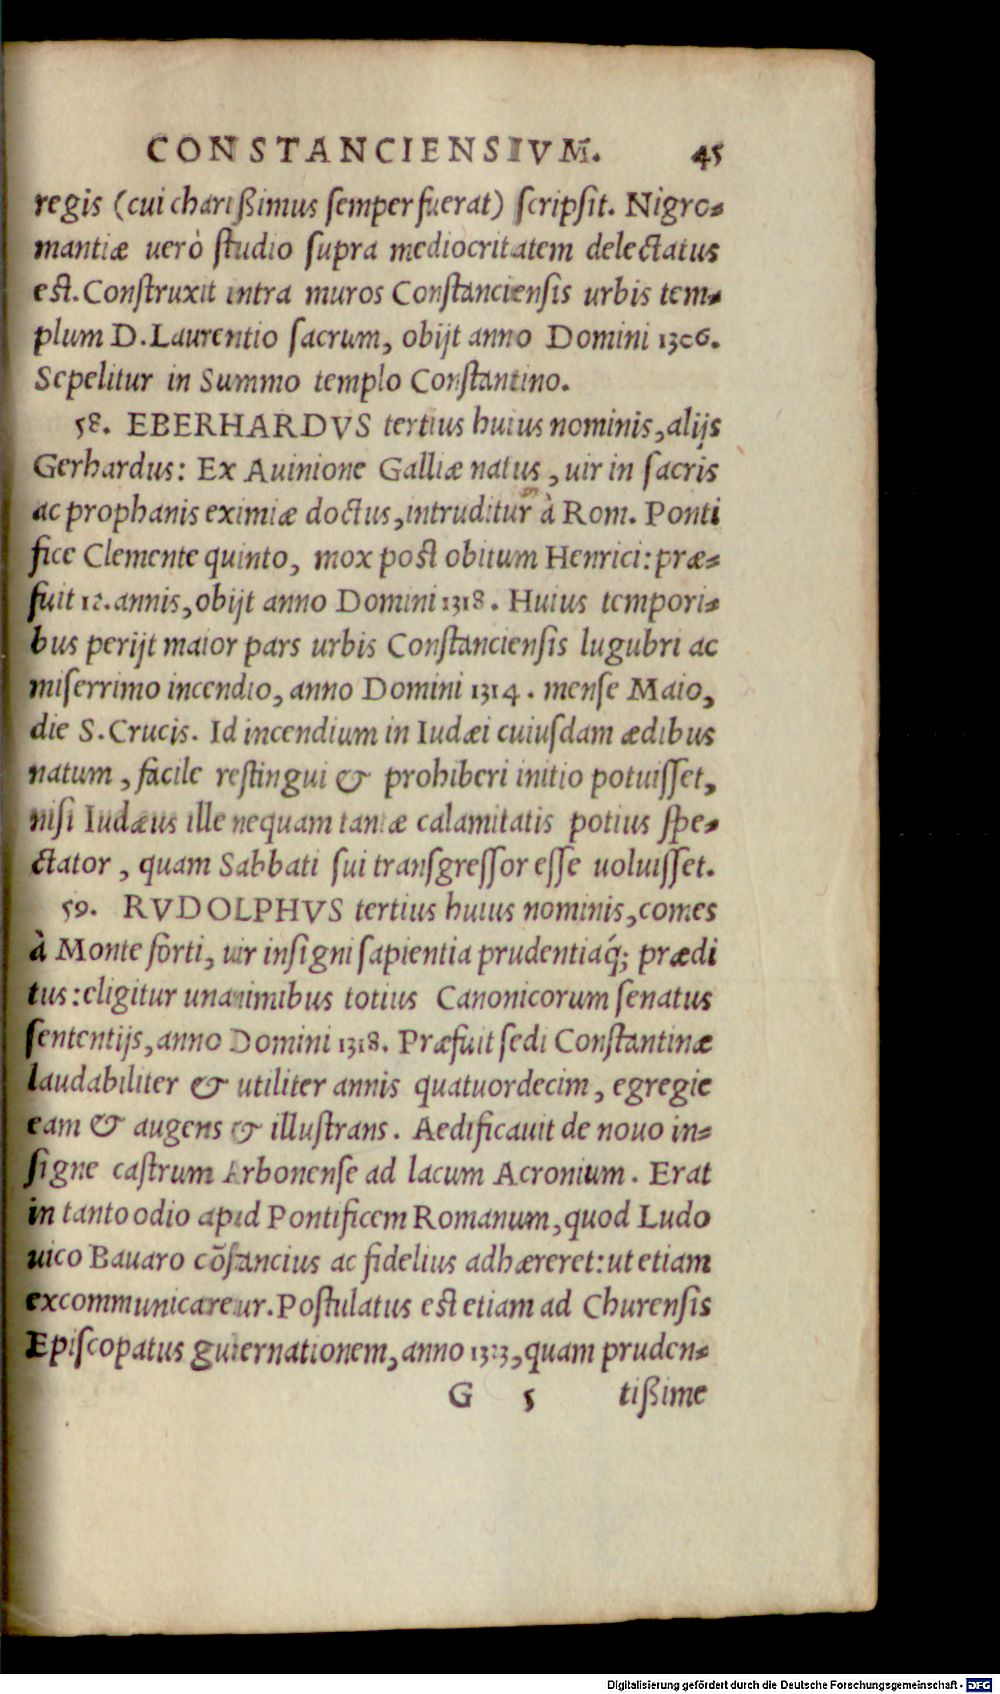 CONSTANCIENSIVM. 45
regis (cui charißimus semper fuerat) scripsit. Nigro-
mantiæ uerò studio supra mediocritatem delectatus
est. Construxit intra muros Constanciensis urbis tem-
plum D. Laurentio sacrum, obijt anno Domini 1306.
Sepelitur in Summo templo Constantino.
58. EBERHARDVS tertius huius nominis, alijs
Gerhardus: Ex Auinione Galliæ natus, uir in sacris
ac prophanis eximiæ doctus, intruditur à Rom. Ponti
fice Clemente quinto, mox post obitum Henrici: præ-
fuit 12. annis, obijt anno Domini 1318. Huius tempori-
bus perijt maior pars urbis Constanciensis lugubri ac
miserrimo incendio, anno Domini 1314. mense Maio,
die S. Crucis. Id incendium in Iudæi cuiusdam ædibus
natum, facile restingui & prohiberi initio potuisset,
nisi Iudæus ille nequam tantæ calamitatis potius spe-
ctator, quam Sabbati sui transgressor esse uoluisset.
59. RVDOLPHVS tertius huius nominis, comes
à Monte forti, uir insigni sapientia prudentiaq́; prædi
tus: eligitur unanimibus totius Canonicorum senatus
sententijs, anno Domini 1318. Præfuit sedi Constantinæ
laudabiliter & utiliter annis quatuordecim, egregie
eam & augens & illustrans. Aedificauit de nouo in-
signe castrum Arbonense ad lacum Acronium. Erat
in tanto odio apud Pontificem Romanum, quod Ludo
uico Bauaro cõstancius ac fidelius adhæreret: ut etiam
excommunicaretur. Postulatus est etiam ad Churensis
Episcopatus gubernationem, anno quam pruden-
G 5 tißime
Digitalisierung gefördert durch die Deutsche Forschungsgemeinschaft - DFG